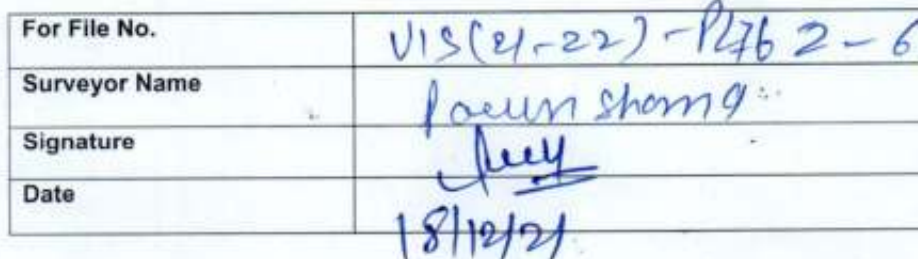 For File No. VIS(21-22)-PL762-6
Surveyor Name Pawan Sharma
Signature
Date 18/12/21